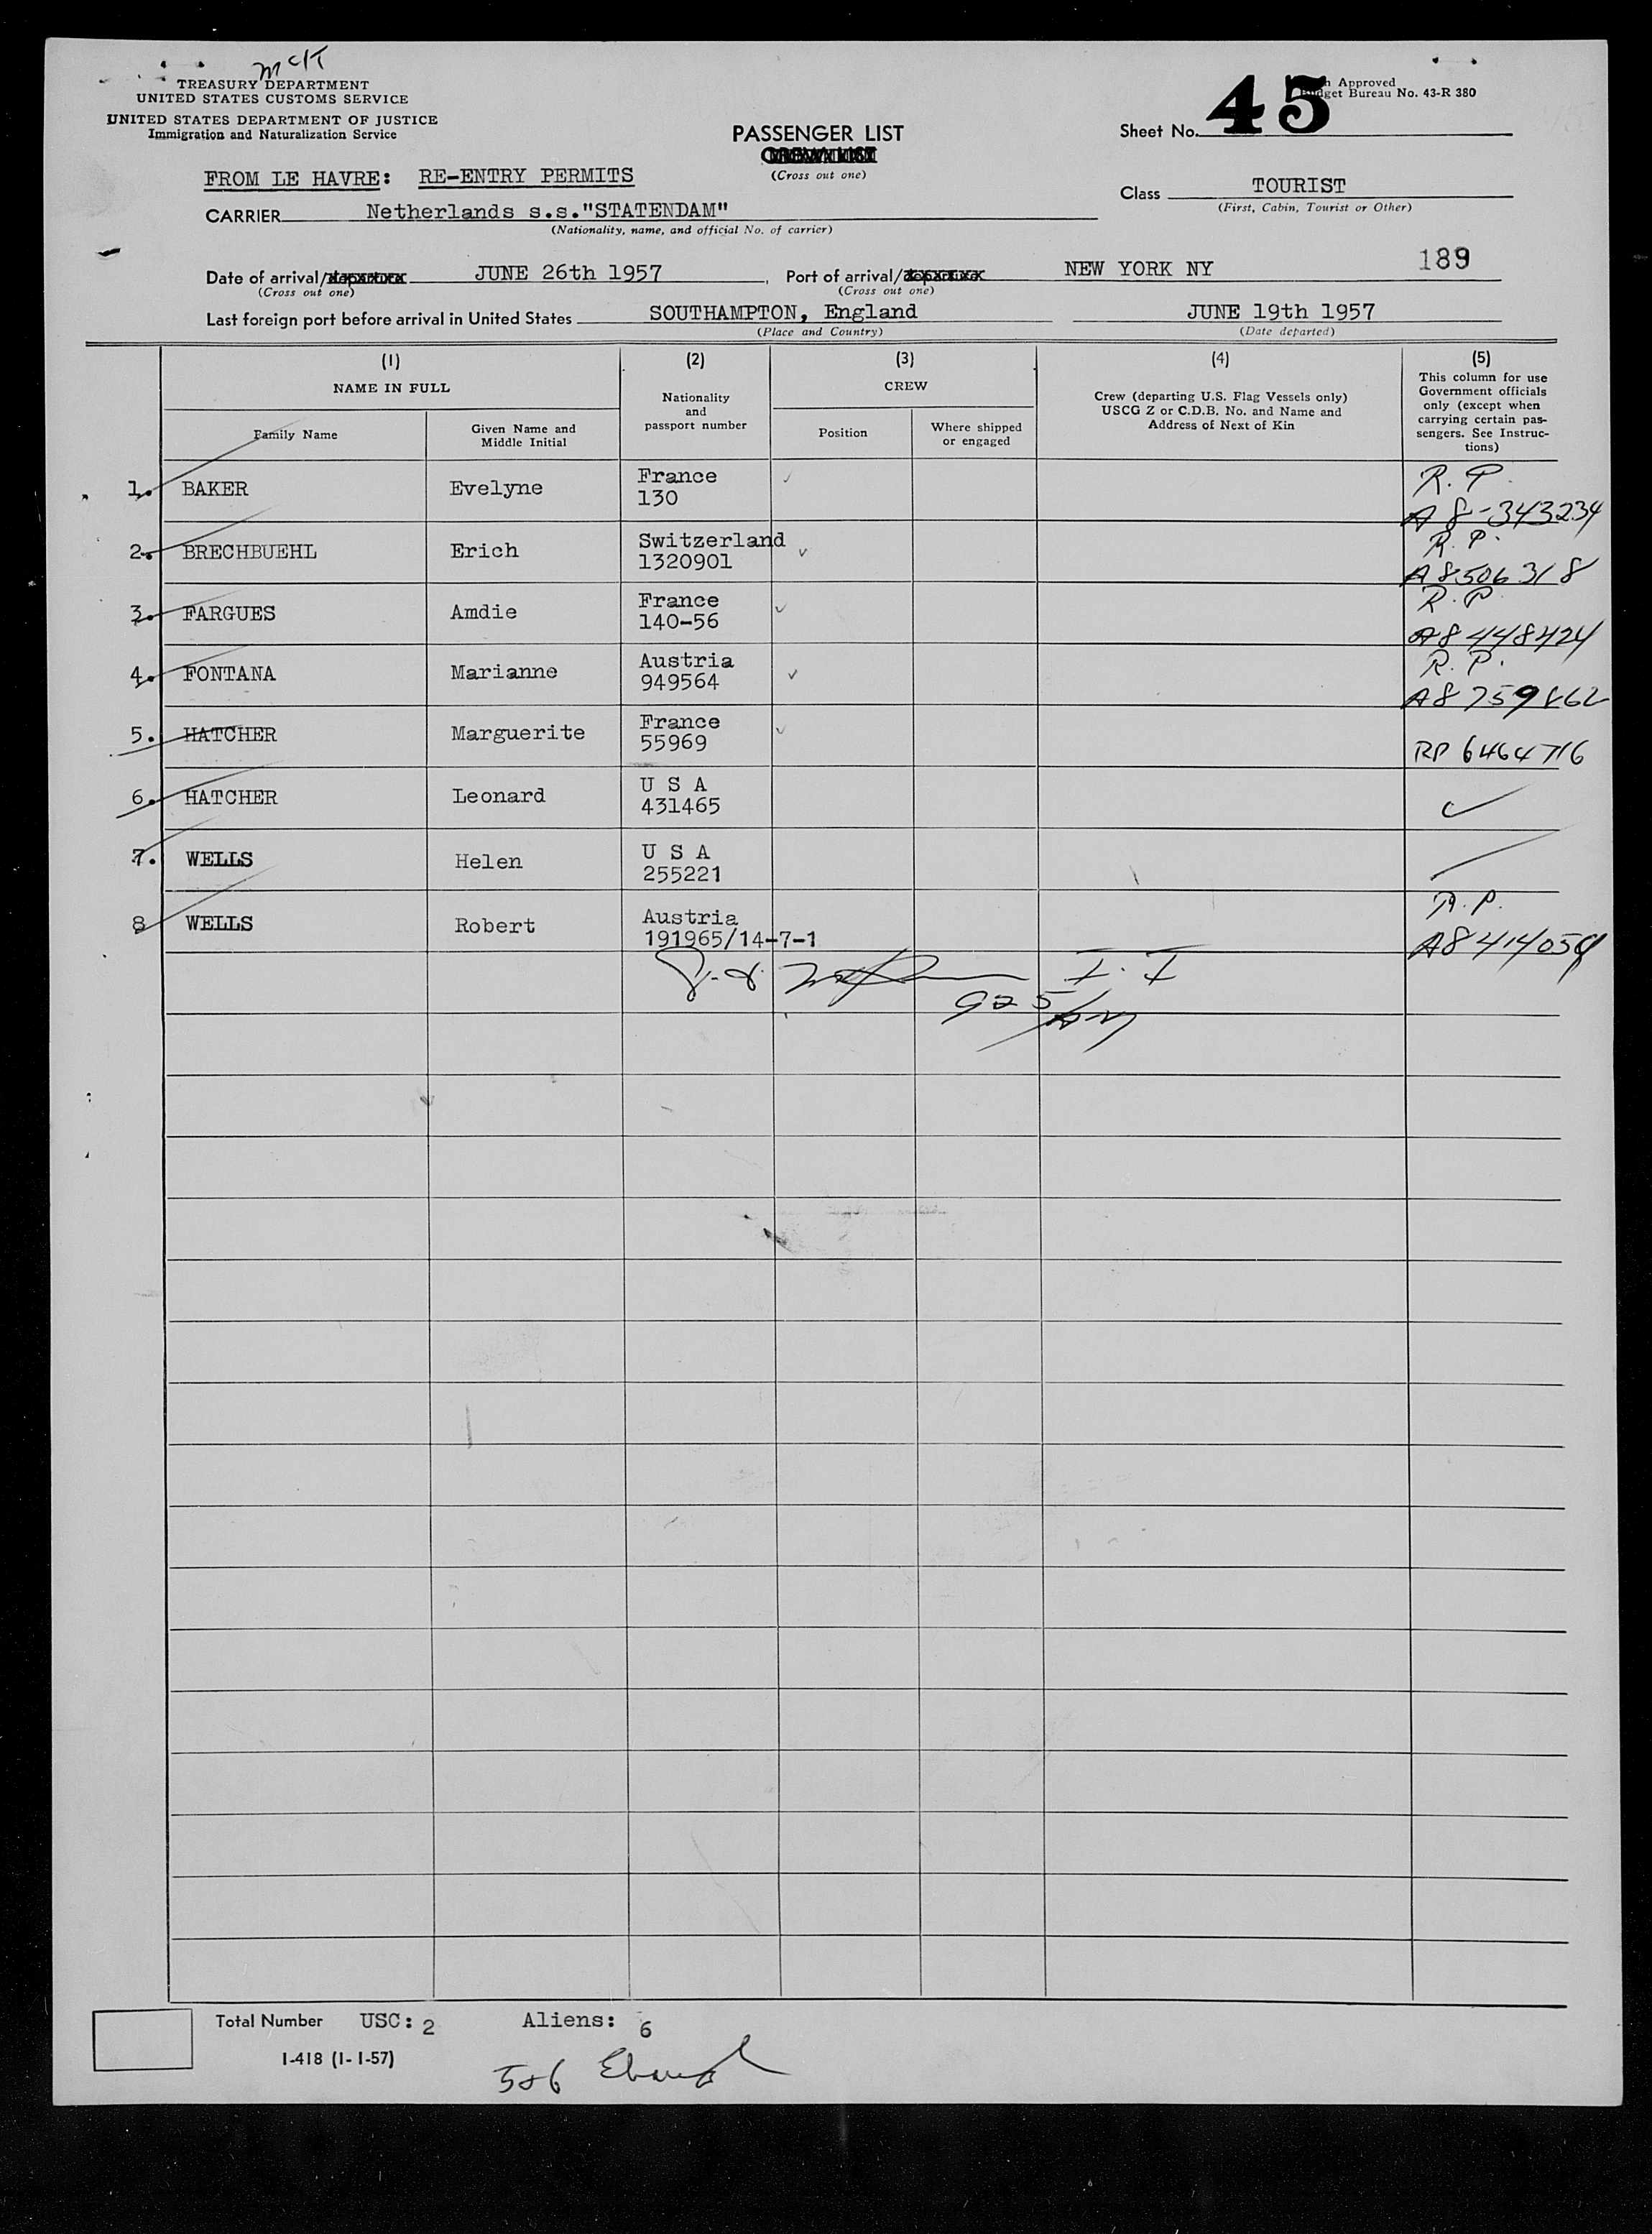 McK
TREASURY DEPARTMENT
UNITED STATES CUSTOMS SERVICE
UNITED STATES DEPARTMENT OF JUSTICE
Immigration and Naturalization Service
Approved
Budget Bureau No. 43-R 380
Sheet No. 45
PASSENGER LIST
(Cross out one)
FROM LE HAVRE: RE-ENTRY PERMITS
Class TOURIST
(First, Cabin, Tourist or Other)
CARRIER Netherlands s.s."STATENDAM"
(Nationality, name, and official No. of carrier)
189
Date of arrival/ JUNE 26th 1957, Port of arrival/ NEW YORK NY
(Cross out one) (Cross out one)
Last foreign port before arrival in United States SOUTHAMPTON, England JUNE 19th 1957
(Place and Country) (Date departed)
(1) (2) (3) (4) (5)
NAME IN FULL
Family Name
Given Name and
Middle Initial
Nationality
and
passport number
CREW
Position
Where shipped
or engaged
Crew (departing U.S. Flag Vessels only)
USCG Z or C.D.B. No. and Name and
Address of Next of Kin
This column for use
Government officials
only (except when
carrying certain pas-
sengers. See Instruc-
tions)
1. BAKER Evelyne France R.P.
130 A8-343234
2. BRECHBUEHL Erich Switzerland R.P.
1320901 A8506318
3. FARGUES Amdie France R.P.
140-56 A8448424
4. FONTANA Marianne Austria R.P.
949564 A8759862
5. HATCHER Marguerite France
55969 RP 6464716
6. HATCHER Leonard U S A
431465
7. WELLS Helen U S A
255221
8 WELLS Robert Austria R.P.
191965/14-7-1 A8414059
I.I
925
AM
Total Number USC: 2 Aliens: 6
I-418 (1-1-57)